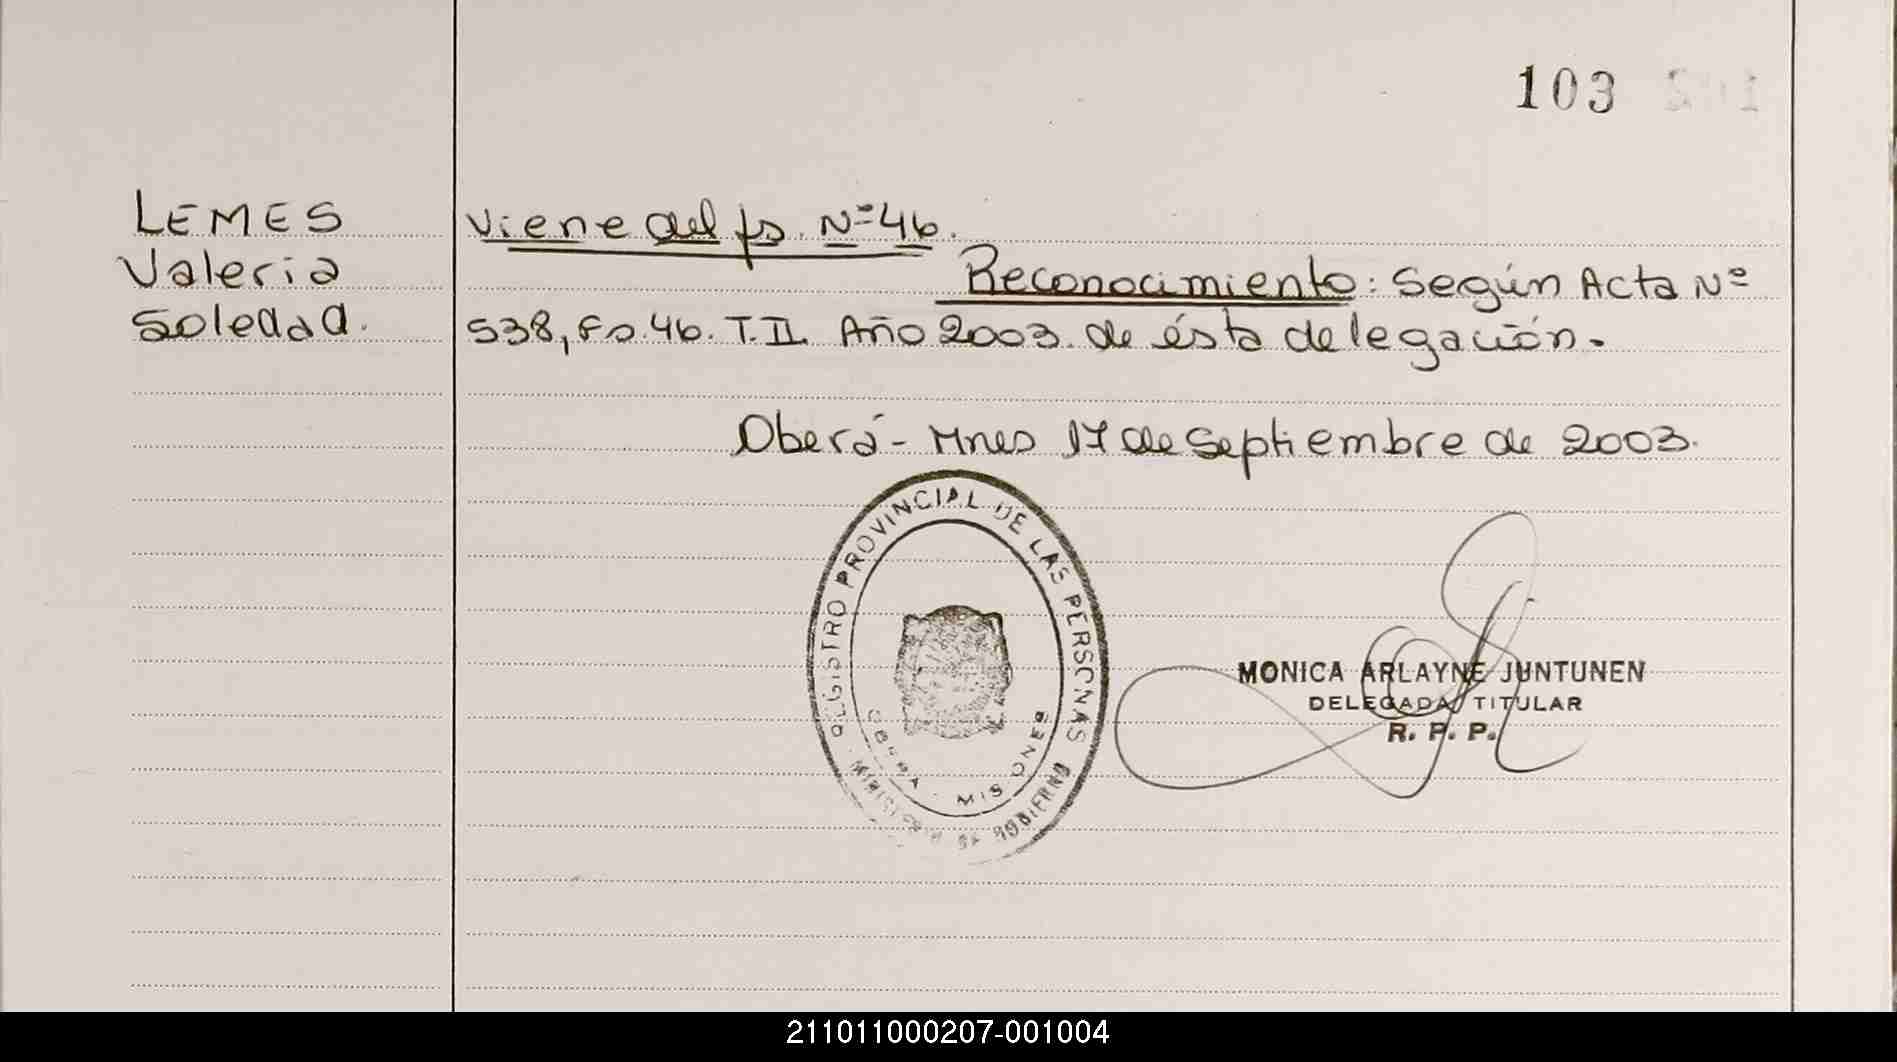 103
LEMES
Valeria
Soledad.
Viene del fs. Nº 46.
Reconocimiento: Según Acta Nº
538, Fo. 46. T. II. Año 2003. de ésta delegación.
Oberá - Mnes 17 de Septiembre de 2003.
REGISTRO PROVINCIAL DE LAS PERSONAS
OBERA - MISIONES
MINISTERIO DE GOBIERNO
MONICA ARLAYNE JUNTUNEN
DELEGADA TITULAR
R. P. P.
211011000207-001004